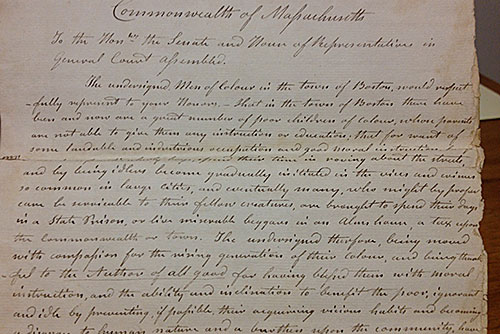 Commonwealth of Massachusetts
To the Honble the Senate and House of Representatives in
General Court Assembled.
The undersigned Men of Colour in the town of Boston, would respect
-fully represent to your Honors - that in the town of Boston there have
been and now are a great number of poor children of colour, whose parents
are not able to give them any instruction or education, that for want of
some laudable and industrious occupation and good moral instruction
their time in roving about the streets,
and by being idlers become gradually initiated in the vices and crimes
so common in large cities, and eventually many, who might by proper
care be serviceable to their fellow creatures, are brought to spend their days
in a State Prison, or live miserable beggars in an Alms house a tax upon
the Commonwealth or town. The undersigned therefore, being moved
with compassion for the rising generation of their Colour, and being thank
-ful to the Author of all good for having blessed them with moral
instruction, and the ability and inclination to benefit the poor, ignorant
and idle by preventing, if possible their acquiring vicious habits and becoming
a disgrace to human nature and a burthen upon the community, have